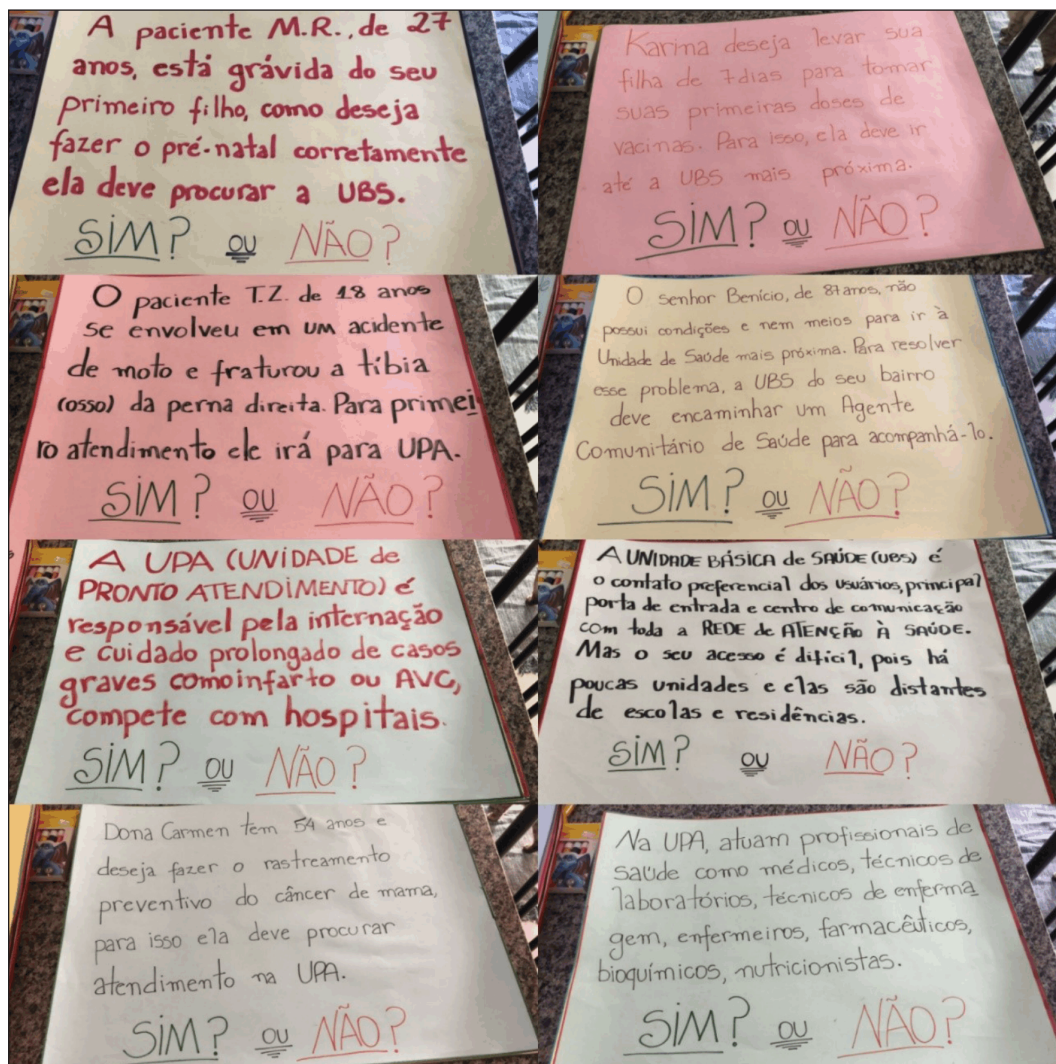 A paciente M.R., de 27
anos, está grávida do seu
primeiro filho, como deseja
fazer o pré-natal corretamente
ela deve procurar a UBS.
SIM? ou NÃO?
Karina deseja levar sua
filha de 7 dias para tomar
suas primeiras doses de
vacinas. Para isso, ela deve ir
até a UBS mais próxima.
SIM? ou NÃO?
O paciente T.Z. de 18 anos
se envolveu em um acidente
de moto e fraturou a tíbia
(osso) da perna direita. Para primei
ro atendimento ele irá para UPA.
SIM? ou NÃO?
O senhor Benício, de 87 anos, não
possui condições e nem meios para ir à
Unidade de Saúde mais próxima. Para resolver
esse problema, a UBS do seu bairro
deve encaminhar um Agente
Comunitário de Saúde para acompanhá-lo.
SIM? ou NÃO?
A UPA (UNIDADE de
PRONTO ATENDIMENTO) é
responsável pela internação
e cuidado prolongado de casos
graves como infarto ou AVC,
compete com hospitais.
SIM? ou NÃO?
A UNIDADE BÁSICA de SAÚDE (UBS) é
o contato preferencial dos usuários, principal
porta de entrada e centro de comunicação
com toda a REDE de ATENÇÃO À SAÚDE.
Mas o seu acesso é difícil, pois há
poucas unidades e elas são distantes
de escolas e residências.
SIM? ou NÃO?
Dona Carmen tem 54 anos e
deseja fazer o rastreamento
preventivo do câncer de mama,
para isso ela deve procurar
atendimento na UPA.
SIM? ou NÃO?
Na UPA, atuam profissionais de
saúde como médicos, técnicos de
laboratórios, técnicos de enferma
gem, enfermeiros, farmacêuticos,
bioquímicos, nutricionistas.
SIM? ou NÃO?